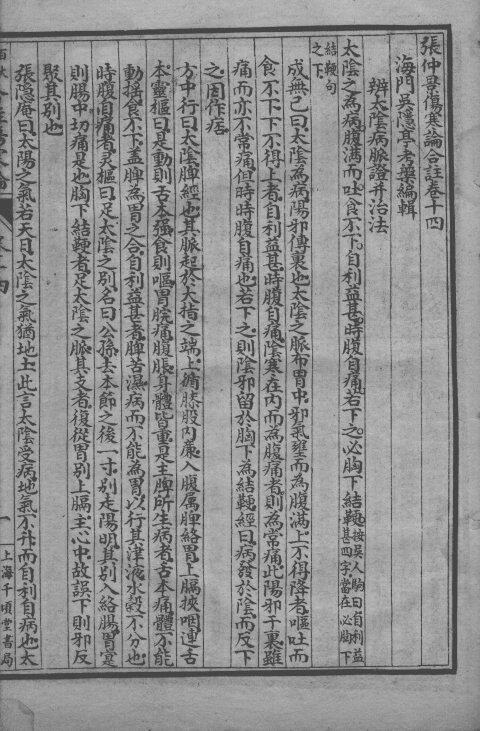 張仲景傷寒論合註卷十四
海門吳隱亭考槃編輯
辨太陰病脈證并治法
太陰之為病腹滿而吐食不下自利益甚時腹自痛若下之必胸下結鞕按吳人駒曰自利益甚四字當在必胸下
結鞕句之下
成無己曰太陰為病陽邪傳裏也太陰之脈布胃中邪氣壅而為腹滿上不得降者嘔吐而
食不下下不得上者自利益甚時腹自痛陰寒在內而為腹痛者則為常痛此陽邪干裏雖
痛而亦不常痛但時時腹自痛也若下之則陰邪留於胸下為結鞕經曰病發於陰而反下
之因作痞
方中行曰太陰脾經也其脈起於大指之端上循膝股內廉入腹属脾絡胃上膈挾咽連舌
本靈樞曰是動則舌本强食則嘔胃脘痛腹脹身體皆重是主脾所生病者舌本痛體不能
動搖食不下盖脾為胃之合自利益甚者脾苦濕病而不能為胃以行其津液水穀不分也
時腹自痛者灵樞曰足太陰之別名曰公孫去本節之後一寸別走陽明其別入絡腸胃實
則腸中切痛是也胸下結鞕者足太陰之脈其支者復從胃別上膈主心中故誤下則邪反
聚其別也
張隱庵曰太陽之氣若天日太陰之氣猶地土此言太陰受病地氣不升而自利自病也太
一
上海千頃堂書局